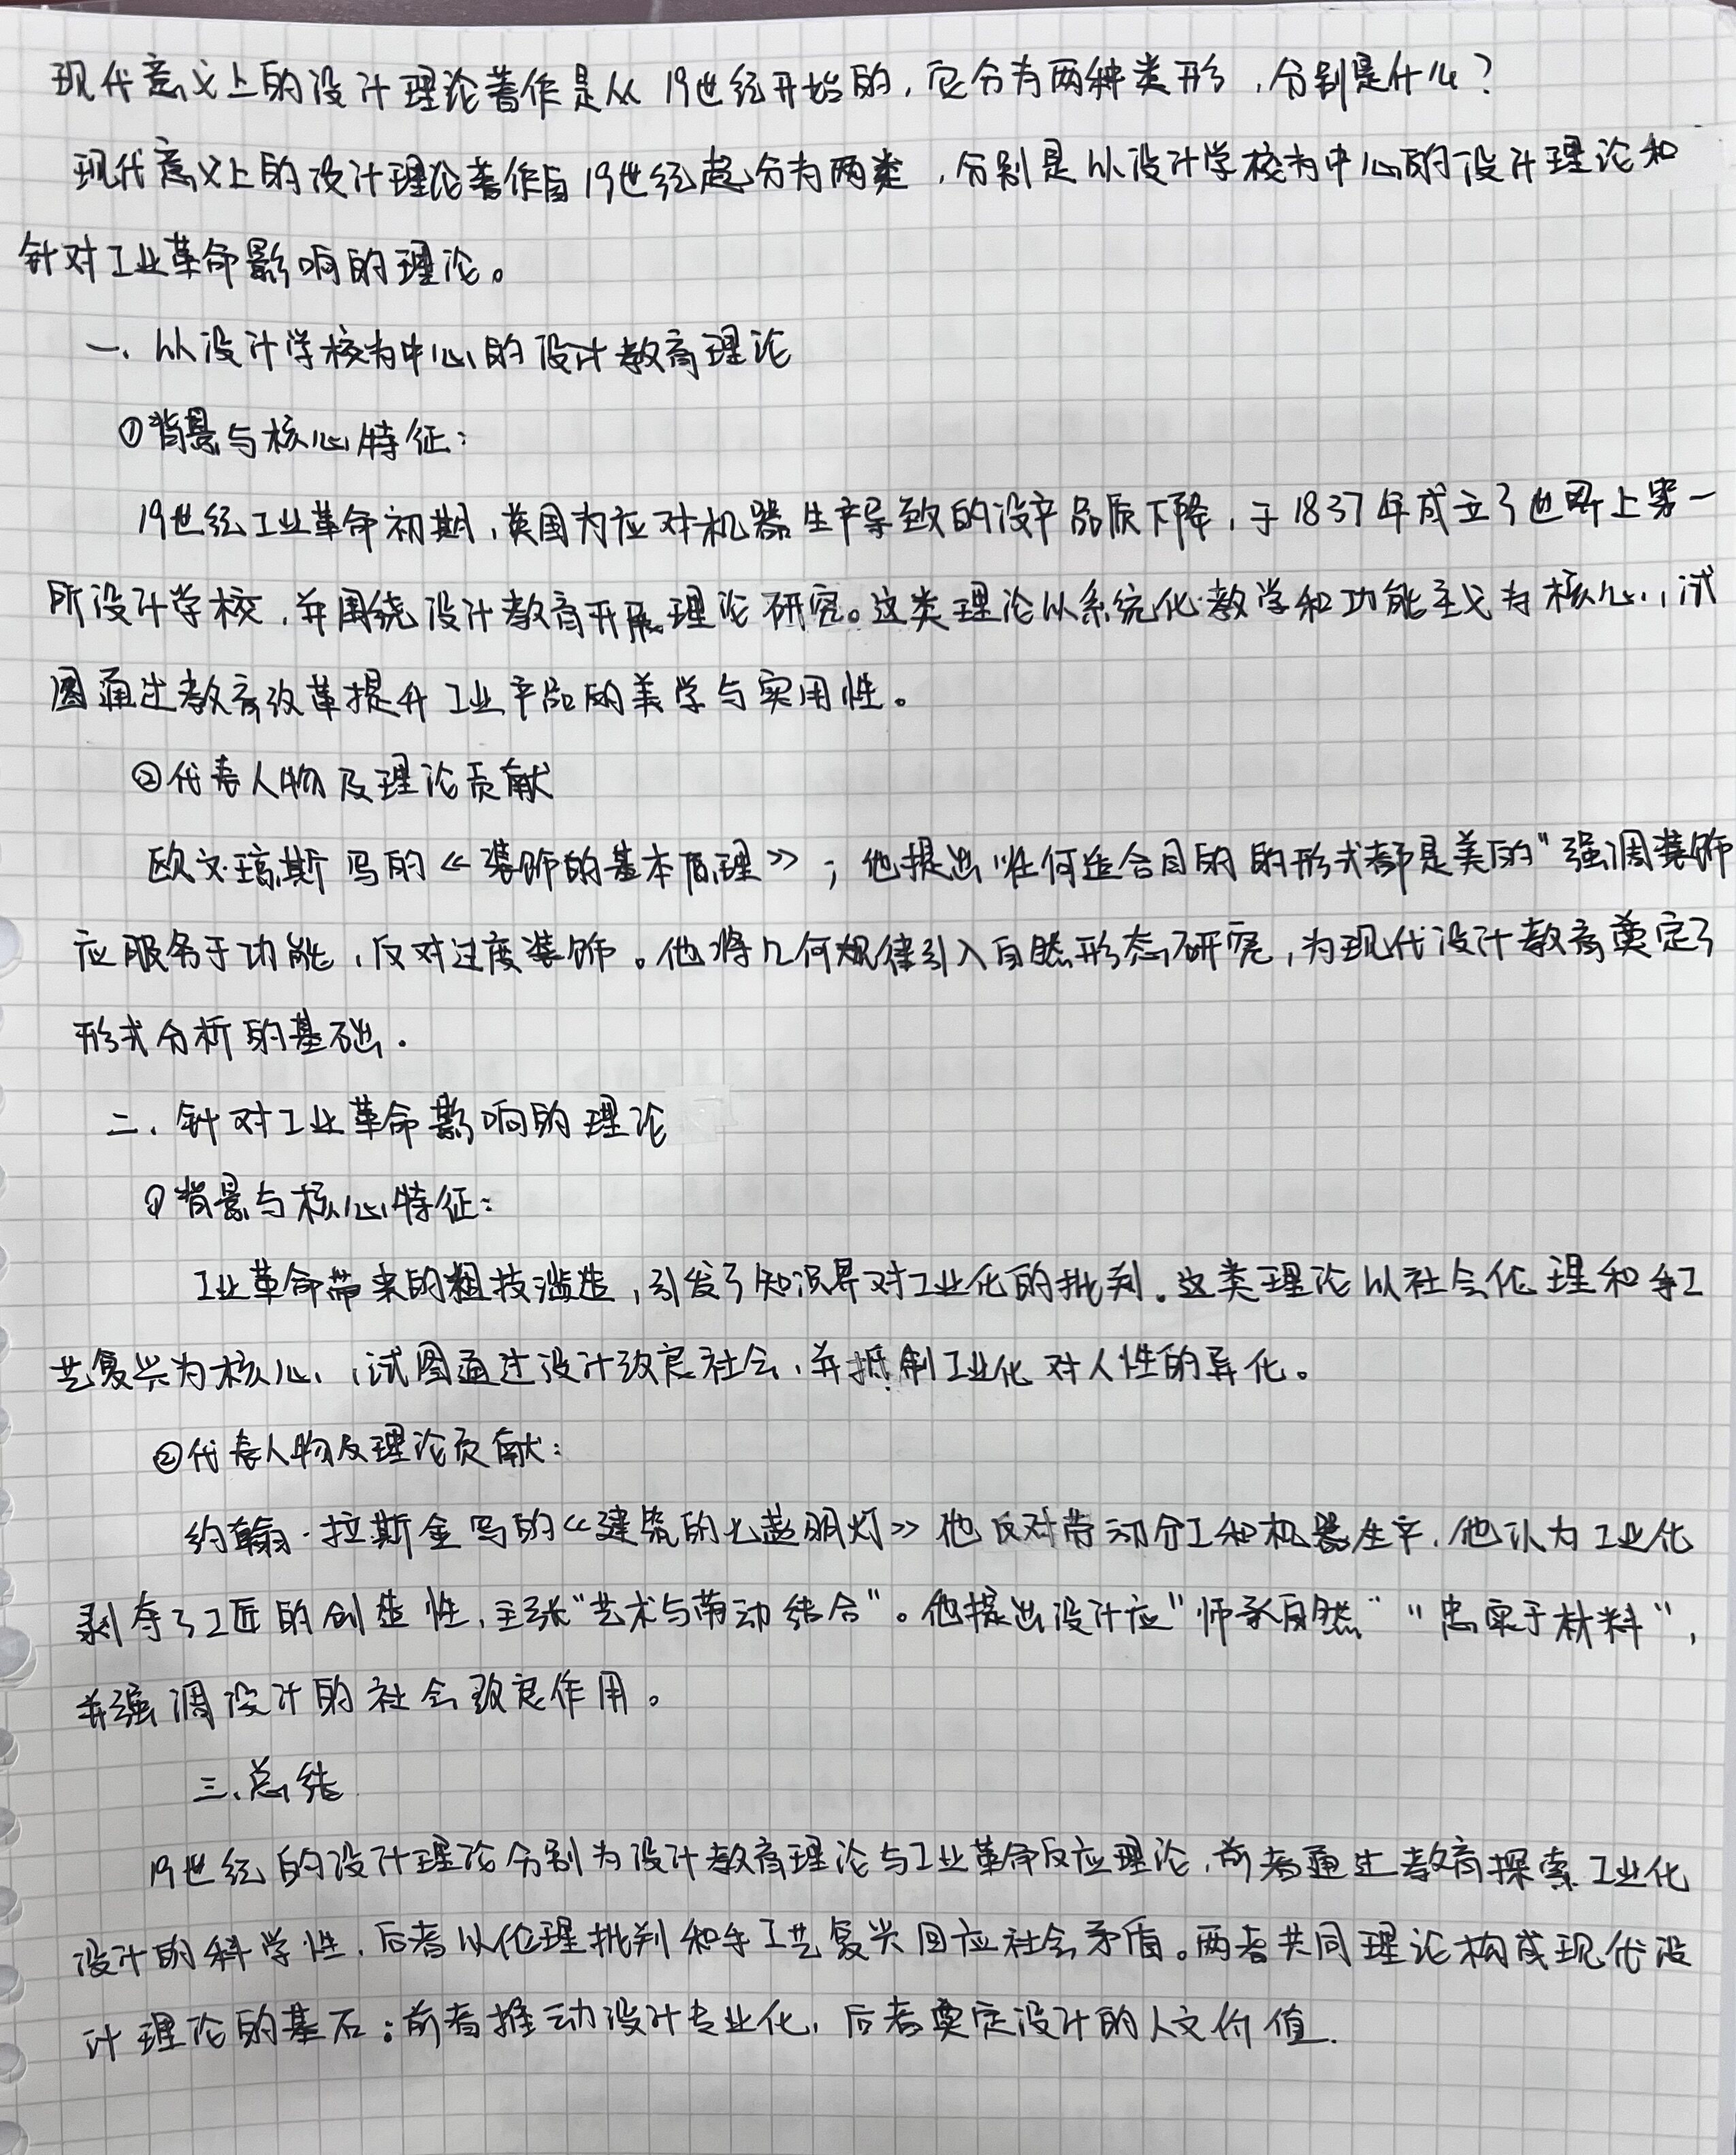 现代意义上的设计理论著作是从19世纪开始的,它分有两种类形,分别是什么?
现代意义上的设计理论著作自19世纪起分为两类,分别是以设计学校为中心的设计理论和
针对工业革命影响的理论。
一、以设计学校为中心的设计教育理论
①背景与核心特征:
19世纪工业革命初期,英国为应对机器生产导致的设产品质下降,于1837年成立了世界上第一
所设计学校,并围绕设计教育开展理论研究。这类理论以系统化教学和功能主义为核心,试
图通过教育改革提升工业产品的美学与实用性。
②代表人物及理论贡献
欧文·琼斯写的《装饰的基本原理》;他提出"任何适合目的的形式都是美的"强调装饰
应服务于功能,反对过度装饰。他将几何规律引入自然形态研究,为现代设计教育奠定了
形式分析的基础.
二、针对工业革命影响的理论
①背景与核心特征:
工业革命带来的粗技滥造,引发了知识界对工业化的批判。这类理论以社会伦理和手工
艺复兴为核心,试图通过设计改良社会,并抵制工业化对人性的异化。
②代表人物及理论贡献:
约翰·拉斯金写的《建筑的七盏明灯》他反对劳动分工和机器生产,他认为工业化
剥夺了工匠的创造性,主张"艺术与劳动结合"。他提出设计应"师承自然""忠实于材料",
并强调设计的社会改良作用。
三、总结
19世纪的设计理论分别为设计教育理论与工业革命反应理论,前者通过教育探索工业化
设计的科学性,后者以伦理批判和手工艺复兴回应社会矛盾。两者共同理论构成现代设
计理论的基石:前者推动设计专业化,后者奠定设计的人文价值.